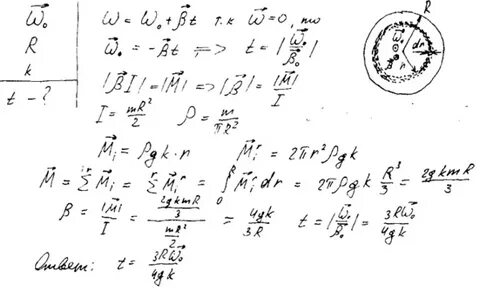 ω⃗₀
R
k
t - ?
ω⃗ = ω⃗₀ + β⃗t т.к ω⃗ = 0, то
ω⃗₀ = -β⃗t => t = |ω⃗₀/β⃗₀|
|β⃗I| = |M⃗| => |β⃗| = |M⃗|/I
I = mR²/2 ρ = m/πR²
M⃗ᵢ = ρgk·r M⃗ᵢʳ = 2πr²ρgk
M⃗ = Σ M⃗ᵢ = Σ M⃗ᵢʳ = ∫₀ᴿ M⃗ᵢʳ dr = 2πρgk R³/3 = 2gkmR/3
β = |M⃗|/I = (2gkmR/3)/(mR²/2) = 4gk/3R t = |ω⃗₀/β⃗₀| = 3Rω⃗₀/4gk
Ответ: t = 3Rω⃗₀/4gk
R
ω⃗₀
dr
β⃗
r